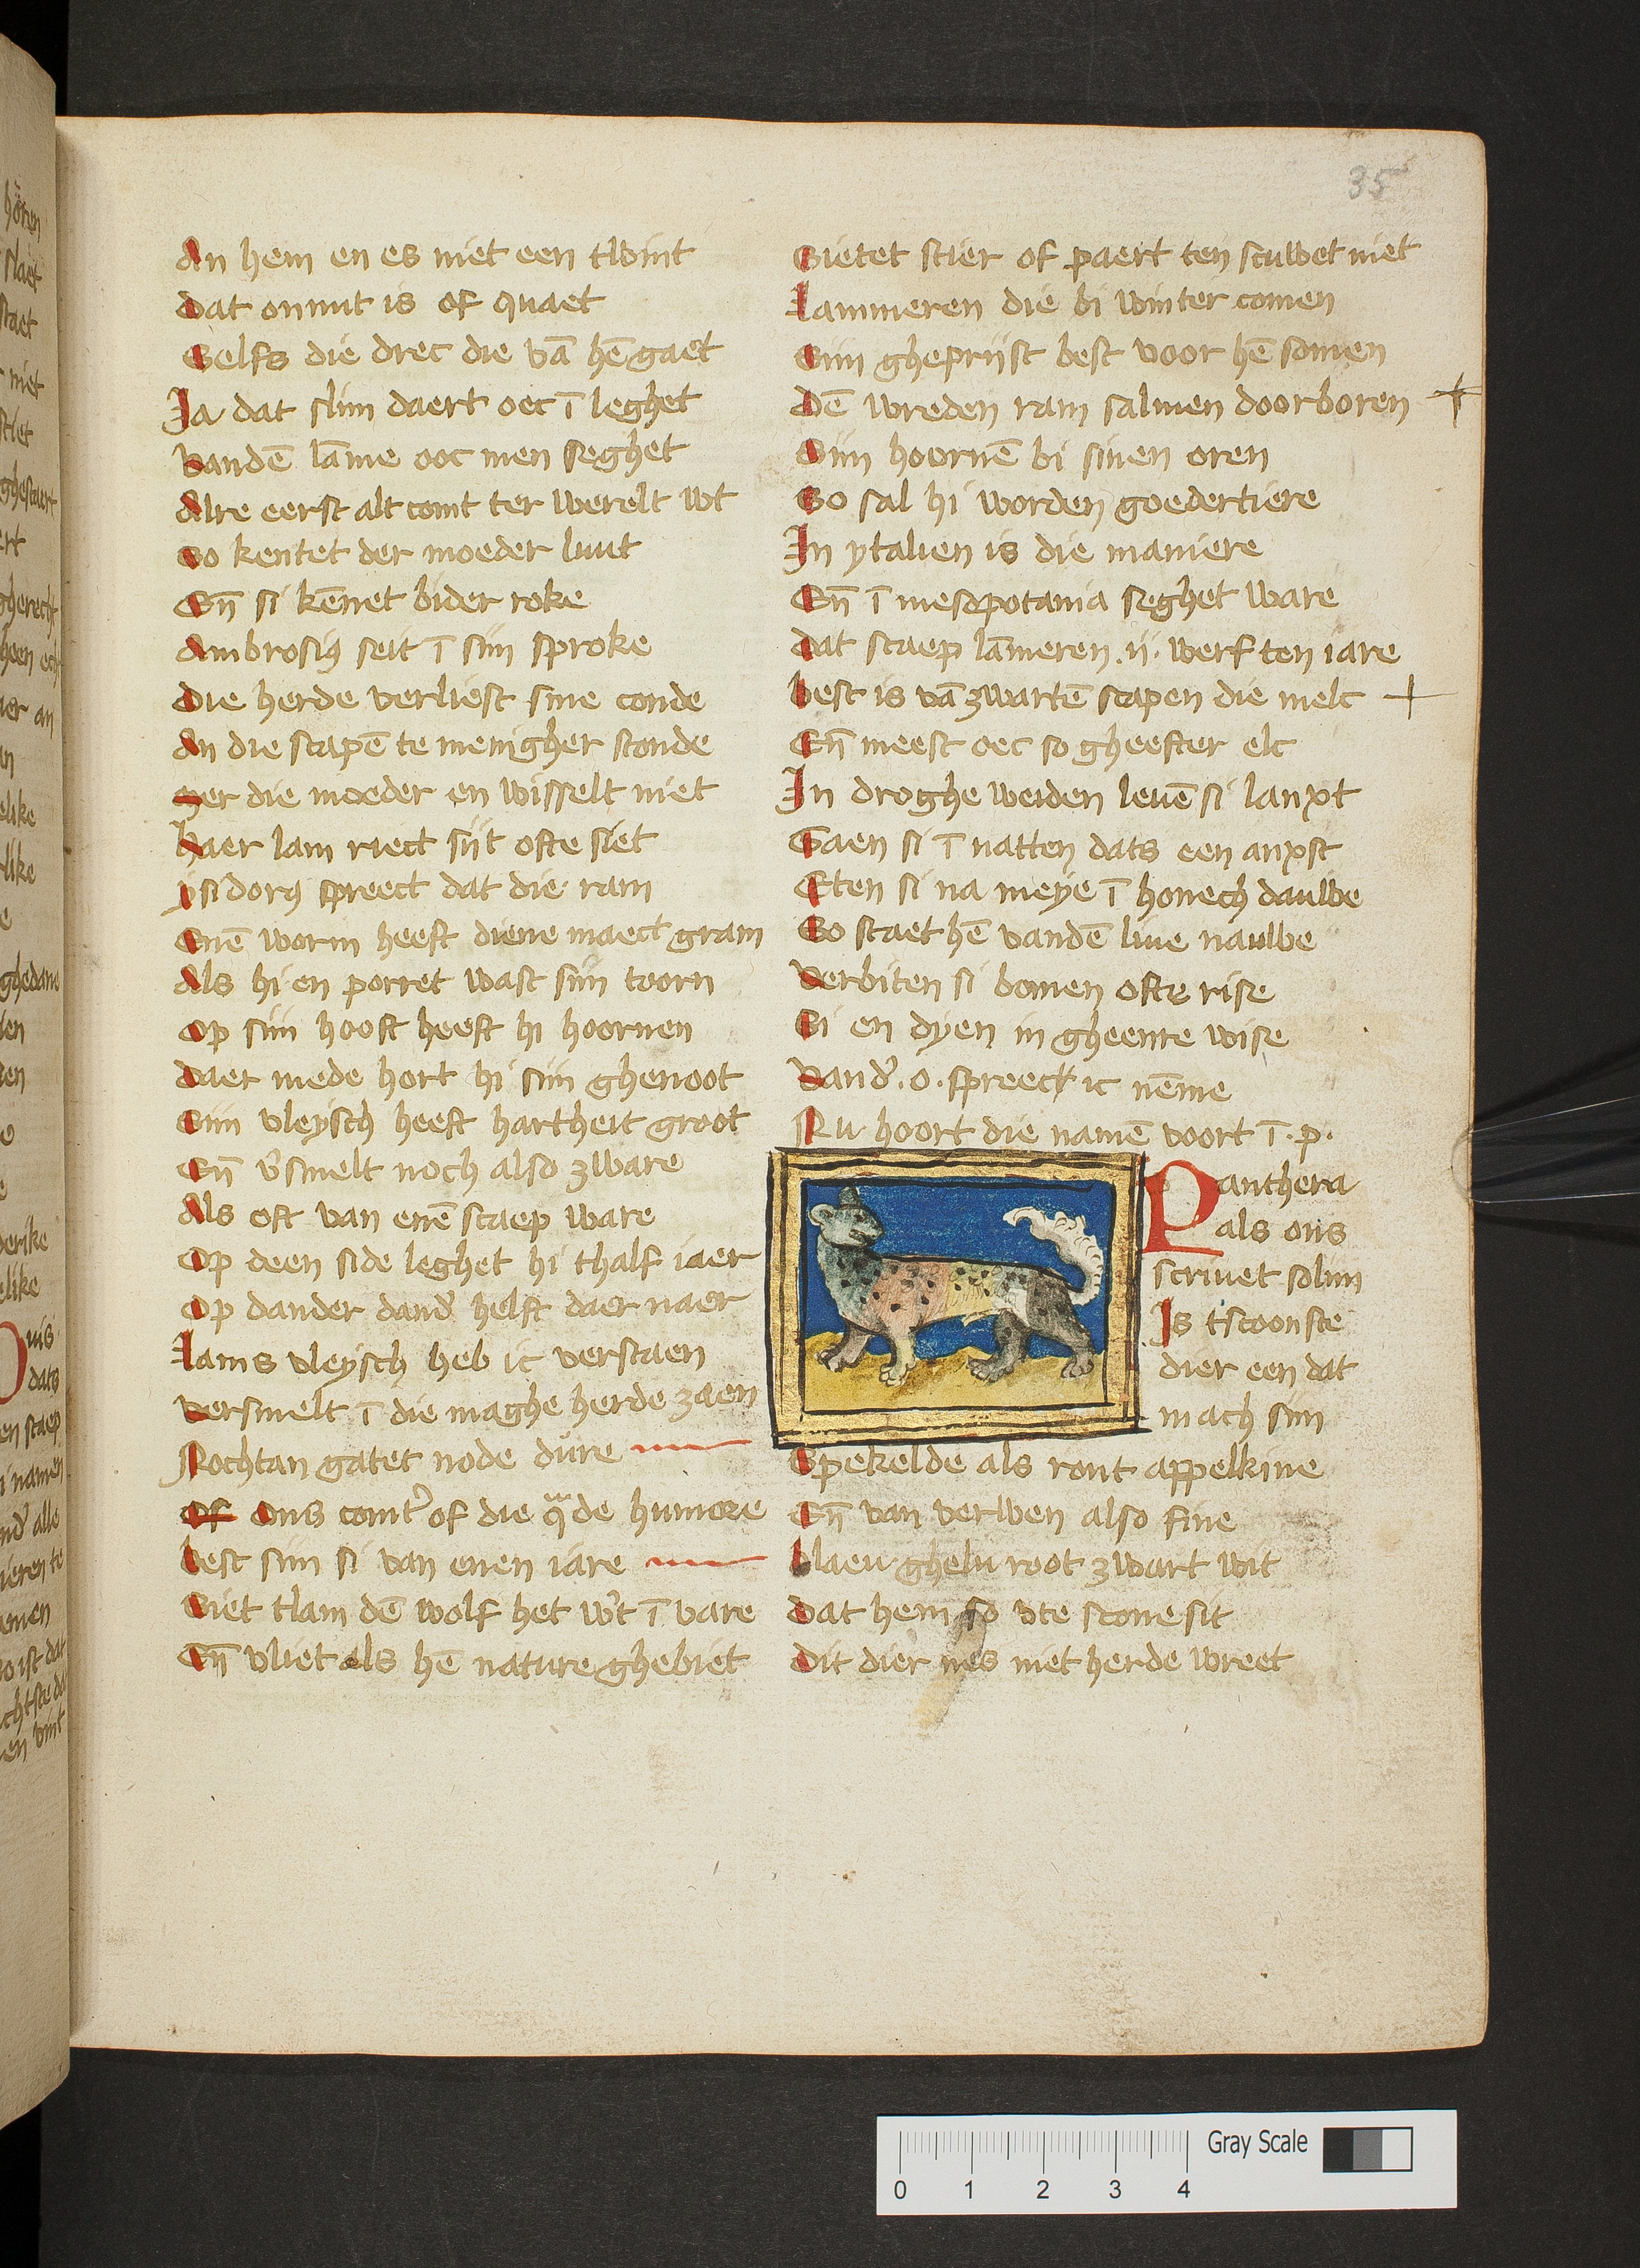 35
An hem en es niet een twint
Dat onnut is of quaet
Selfs die drec die vā hē gaet
Ja dat slim daert oec ī leghet
Vandē lāme ooc men seghet
Alre eerst alt comt ter werelt wt
So kentet der moeder luut
Eñ si kēnet bider roke
Ambrosiꝰ seit ī siin sproke
Die herde verliest sine conde
An die scapē te menigher stonde
Mer die moeder en wisselt niet
Haer lam riect siit ofte siet
Ysidorꝰ spreect dat die ram
Enē worm heeft diene maect gram
Als hi en porret wast siin toorn
Op siin hooft heeft hi hoornen
Daer mede hort hi siin ghenoot
Siin vleysch heeft hartheit groot
Eñ v̓smelt noch also zware
Als oft van enē scaep ware
Op deen side leghet hi thalf iaer
Op dander dand̓ helft daer naer
Lams vleysch heb ic verstaen
Versmelt ī die maghe herde zaen
Nochtan gatet node dure
Of Ons comt̓ of die qᵃde humore
Best siin si van enen iare
Siet tlam dē wolf het w̓t ī vare
Eñ vliet als hē nature ghebiet
Sietet stier of paert ten scuwet niet
Lammeren die bi winter comen
Siin ghepriist best voor hē somen
Dē wreden ram salmen doorboren
Siin hoornē bi sinen oren
So sal hi worden goedertiere
In ytalien is die maniere
Eñ ī mesopotania seghet ware
Dat scaep lāmeren .ii. werf ten iare
Best is vā zwartē scapen die melc
Eñ meest oec so gheefter elc
In droghe weiden leuē si lanxt
Gaen si ī natten dats een anxst
Eten si na meye ī honech dauwe
So staet hē vandē liue nauwe
Verbiten si bomen ofte rise
Si en dyen in gheenre wise
Vand̓ .o. spreect ic nēme
Nu hoort die namē voort ī .p.
Panthera
als ons
scriuet solun
Is tscoonste
dier een dat
mach siin
Spekelde als ront appelkine
Eñ van verwen also fine
Blaeu ghelu root zwart wit
Dat hem so vte scone sit
Dit dier nes niet herde wreet
Gray Scale
0 1 2 3 4